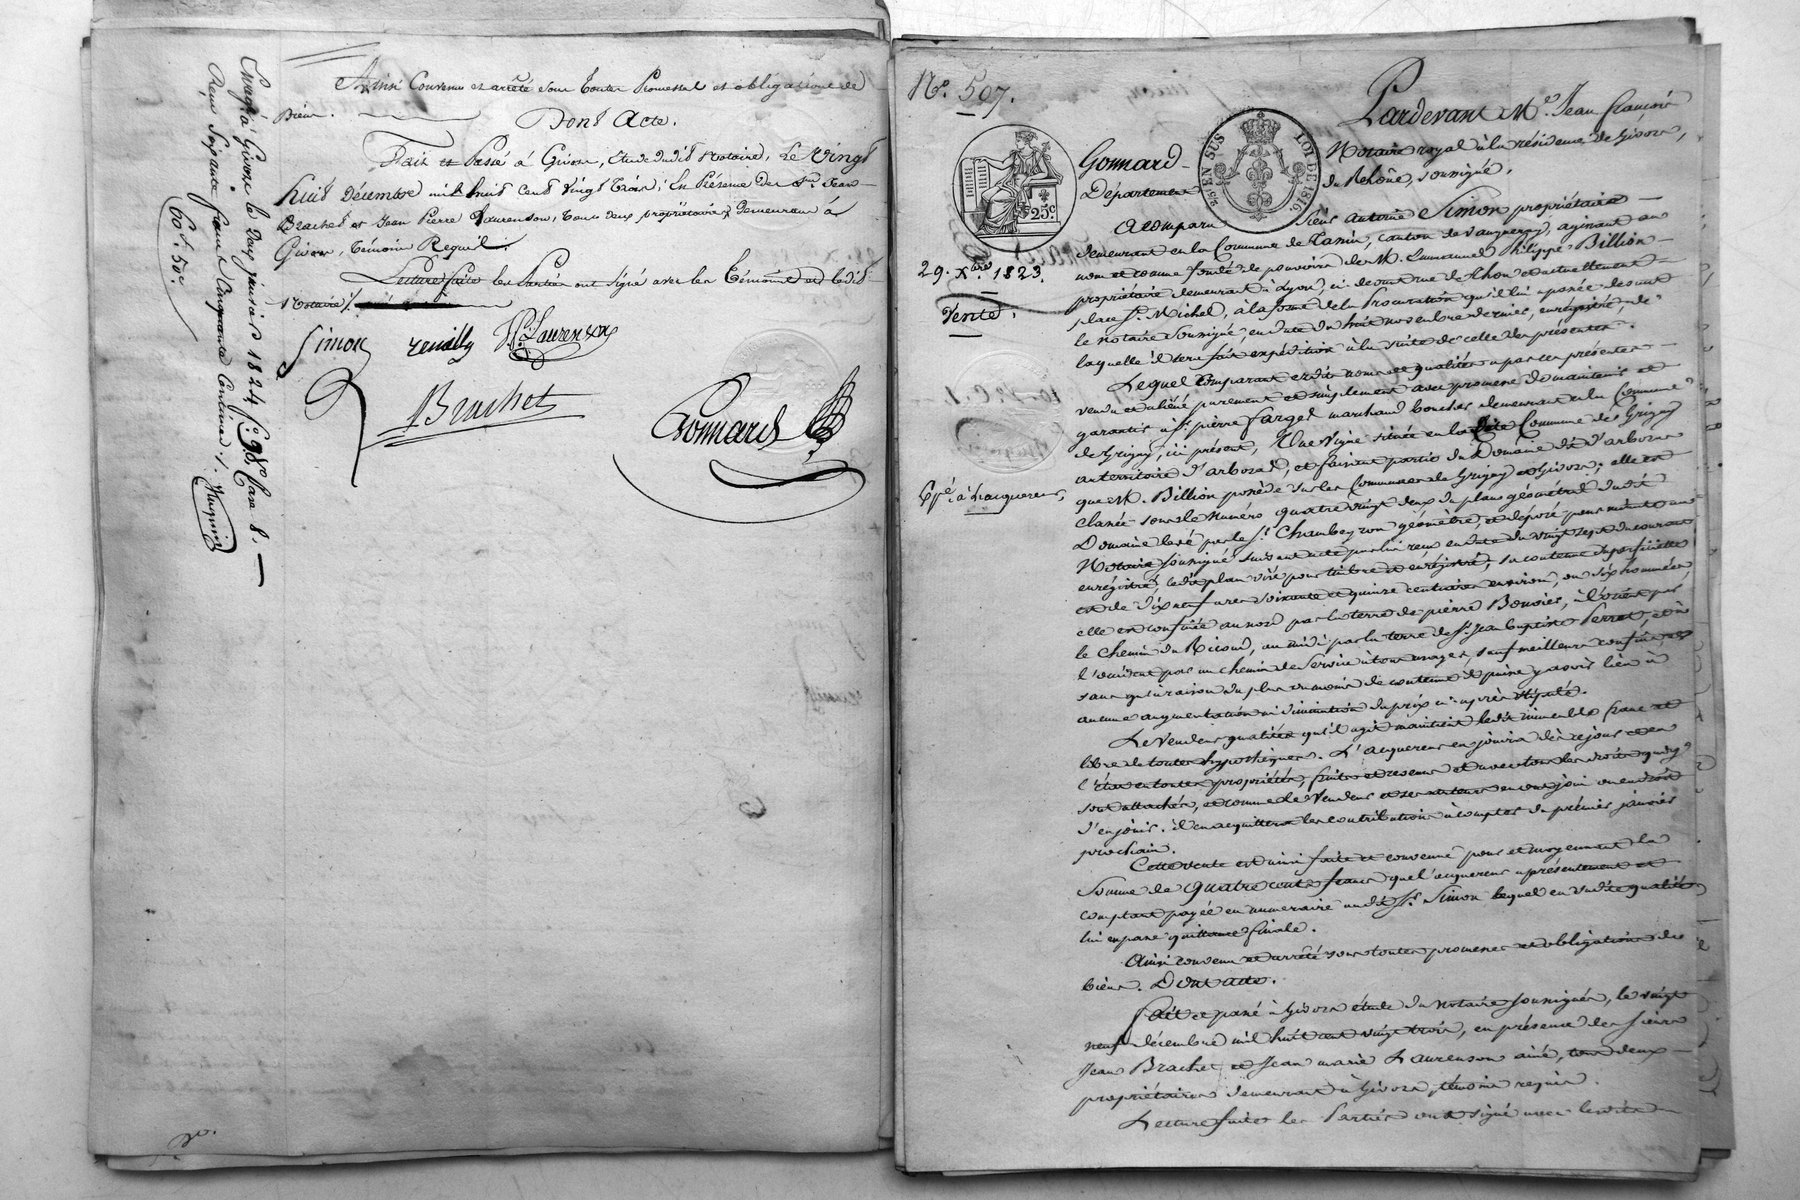 Ainsi Convenu et arrêté sous toutes Promesses et obligations de
Biens.
Dont Acte.
Fait et Passé à Givors, Etude dudit Notaire, Le Vingt
huit Décembre mil huit cent vingt trois; En Présence des Srs. Jean
Brachet et Jean Pierre Laurenson, tous deux propriétaires Demeurant à
Givors, Témoins Requis.
Lecture faite les Parties ont signé avec les Témoins et ledit
Notaire /.
Simon renilly JP. Laurenson
Brachet
Gonnard
Enregé à Givors le Deux janvier 1824 fo. 98 Vo Case 8.
Reçu Soixante francs Cinquante Centimes /.
60f. 50c
No. 507.
25c
25c EN SUS LOI DE 1816
29. Xbre 1823.
Vente.
Expé. à l'acquereur
Pardevant Me. Jean François
Gonnard Notaire royal à la résidence de Givors,
Département du Rhône, soussigné.
A Comparu Sieur Antoine Simon propriétaire
demeurant en la Commune de canton de Vaugneray, agissant au
nom et comme fondé de pouvoirs de M. Emmanuel Philippe Billion
propriétaire demeurant à Lyon, ci-devant rue et actuellement
place St. Michel, à la forme de la Procuration qu'il lui a passée devant
le notaire soussigné, en date du huit novembre dernier, enregistrée, de
laquelle il sera fait expédition à la suite de celle des présentes.
Lequel Comparant ès dits noms et qualités a par ces présentes
vendu et aliéné purement et simplement avec promesse de maintenir et
garantir à Sr. pierre Farget marchand boucher demeurant en la Commune
de Grigny, ici présent, Une Vigne située en la dite Commune de Grigny
au territoire d'arboras, et faisant partie du Domaine dit d'arboras
que M. Billion possède sur les Communes de Grigny et Givors; elle est
classée sous le Numéro quatre vingt deux du plan géométral dudit
Domaine levé par le Sr. Chambeyron géomètre, et déposé pour minute au
Notaire soussigné suivant acte par lui reçu en date du vingt sept du courant
enregistré, ledit plan visé pour timbre et enregistré, sa contenue superficielle
est de dix neuf ares soixante et quinze centiares environ, ou six hommées,
elle est confinée au nord par la terre de pierre Bouvier, à l'orient par
le chemin du Ricoud, au midi par la terre de Sr. Jean Baptiste Perret, et à
l'occident par un chemin de service à tous usages, sauf meilleurs confins, et
sans qu'à raison du plus ou moins de contenue il puisse y avoir lieu à
aucune augmentation ni diminution du prix ci-après stipulé.
Le Vendeur qualités qu'il agit maintient ledit immeuble franc et
libre de toutes hypothèques. L'acquereur en jouira dès ce jour et en
l'état en toutes propriétés, fruits et revenus et avec tous les droits qui y
sont attachés, et comme le Vendeur et ses auteurs en ont joui ou eu droit
d'en jouir. il en acquittera les contributions à compter du premier janvier
prochain.
Cette vente est ainsi faite et convenue pour et moyennant la
Somme de quatre cents francs que l'acquereur a présentement et
comptant payée en numéraire audit Sr. Simon lequel en sa dite qualité
lui en passe quittance finale.
Ainsi convenu et arrêté sous toutes promesses et obligations de
biens. Dont acte.
Fait et passé à Givors étude du notaire soussigné, le vingt
neuf décembre mil huit cent vingt trois, en présence des sieurs
Jean Brachet et Jean marie Laurenson ainé, tous deux
propriétaires demeurant à Givors, témoins requis.
Lecture faite les Parties ont signé avec lesdits